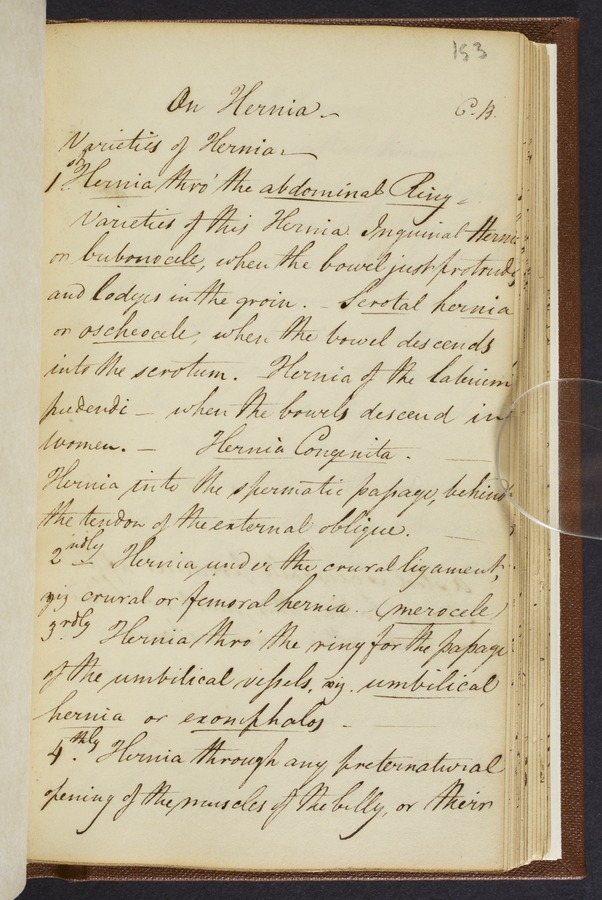 153
On Hernia. C. B.
Varieties of Hernia
1st Hernia thro' the abdominal Ring
Varieties of this Hernia. Inguinal Hernia
or bubonocele, when the bowel just protrudes
and lodges in the groin. - Scrotal hernia
or oscheocele, when the bowel descends
into the scrotum. Hernia of the labium
pudendi - when the bowels descend in
women. - Hernia Congenita.
Hernia into the spermatic passage, behind
the tendon of the external oblique.
2ndly Hernia under the crural ligament,
viz crural or femoral hernia. (merocele)
3rdly Hernia thro' the ring for the passage
of the umbilical vessels, viz. umbilical
hernia or exomphalos -
4thly Hernia through any preternatural
opening of the muscles of the belly, or their